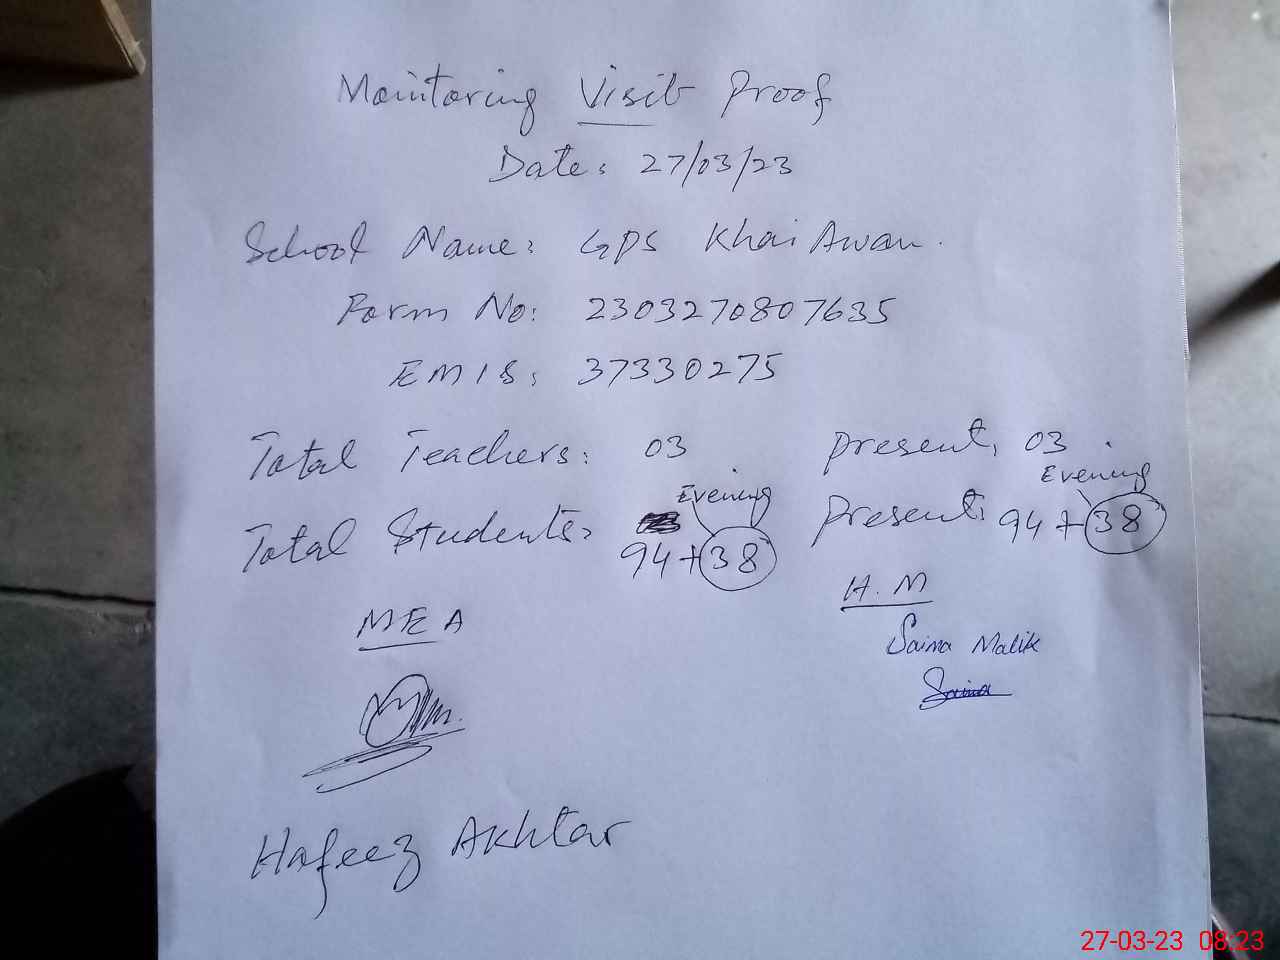 Monitoring Visit Proof
Date: 27/03/23
School Name: GPS Khai Awan.
Form No: 2303270807635
EMIS: 37330275
Total Teachers: 03 present: 03
Evening Evening
Total Students: 94+38 present: 94+38
MEA H.M
Saima Malik
Saima
Hafeez Akhtar
27-03-23 08:23